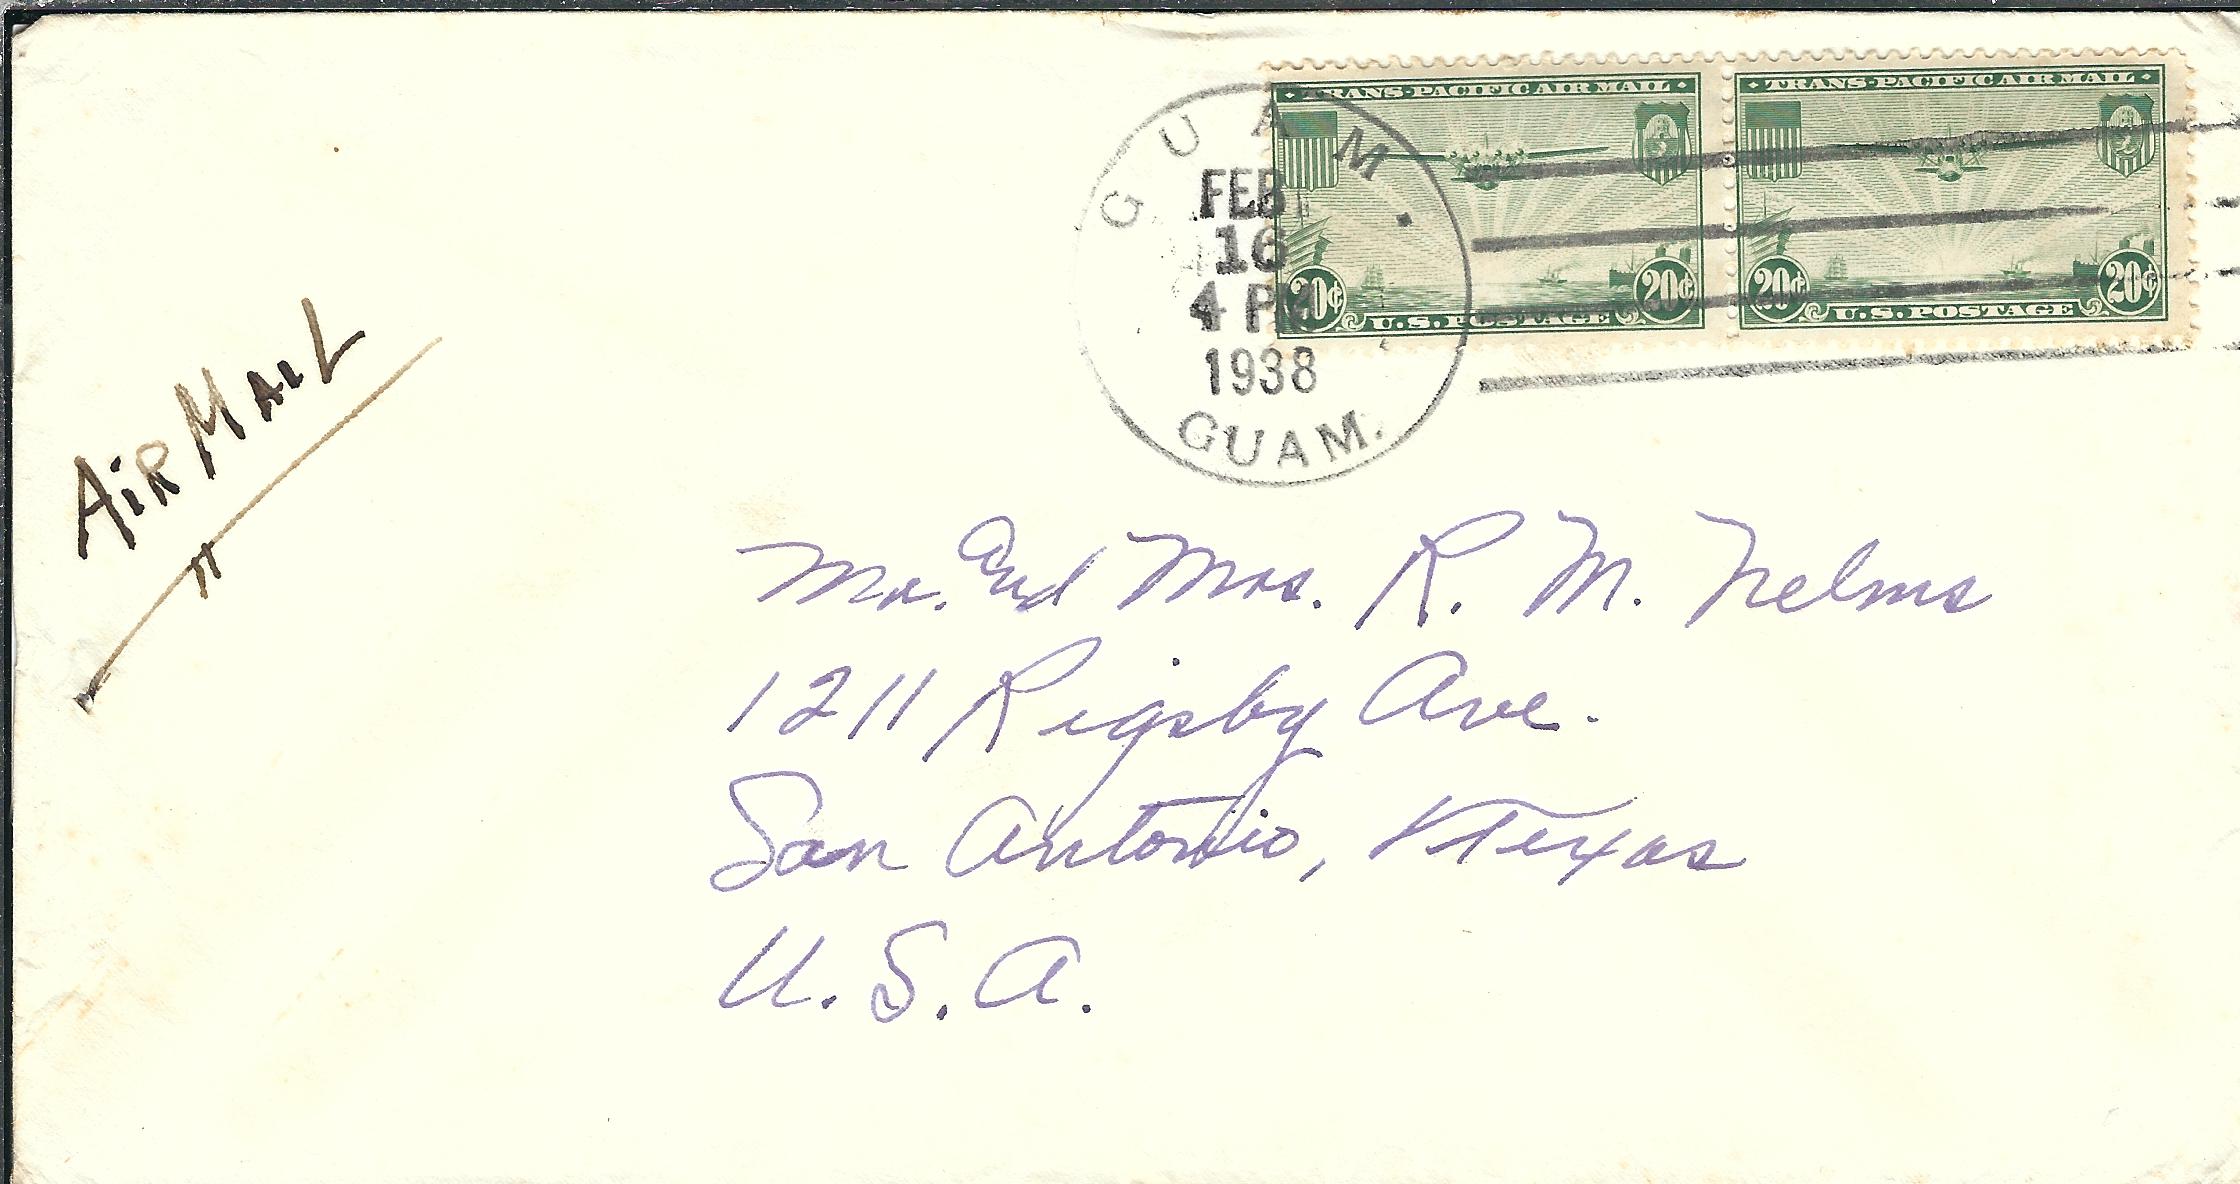 TRANS-PACIFIC AIR MAIL
20¢ 20¢
U.S. POSTAGE
TRANS-PACIFIC AIR MAIL
20¢ 20¢
U.S. POSTAGE
GUAM.
FEB
16
4 PM
1938
GUAM.
AiR MAiL
Mr. and Mrs. R. M. Nelms
1211 Rigsby Ave.
San Antonio, Texas
U. S. A.